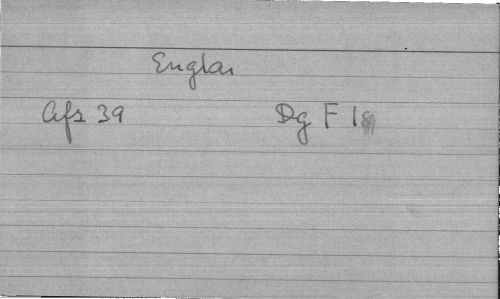 Englar
Afs 39 Dg F 18